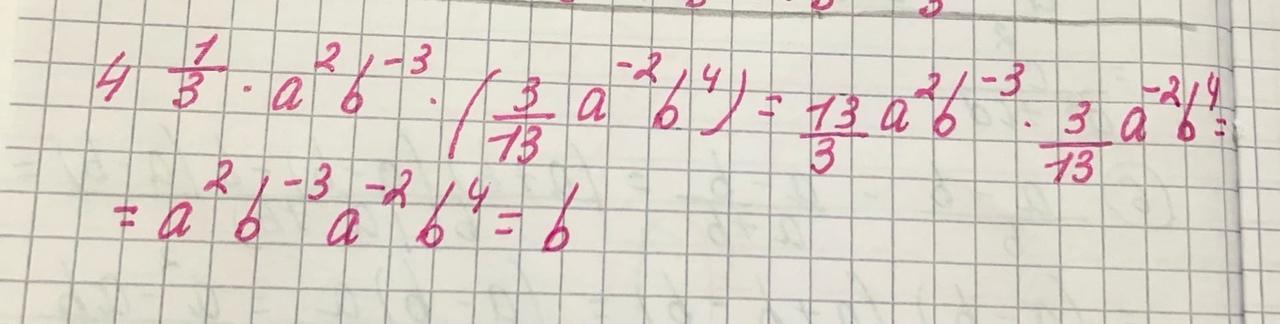 4 1/3 · a²b⁻³ · (3/13 a⁻²b⁴) = 13/3 a²b⁻³ · 3/13 a⁻²b⁴ =
= a²b⁻³a⁻²b⁴ = b